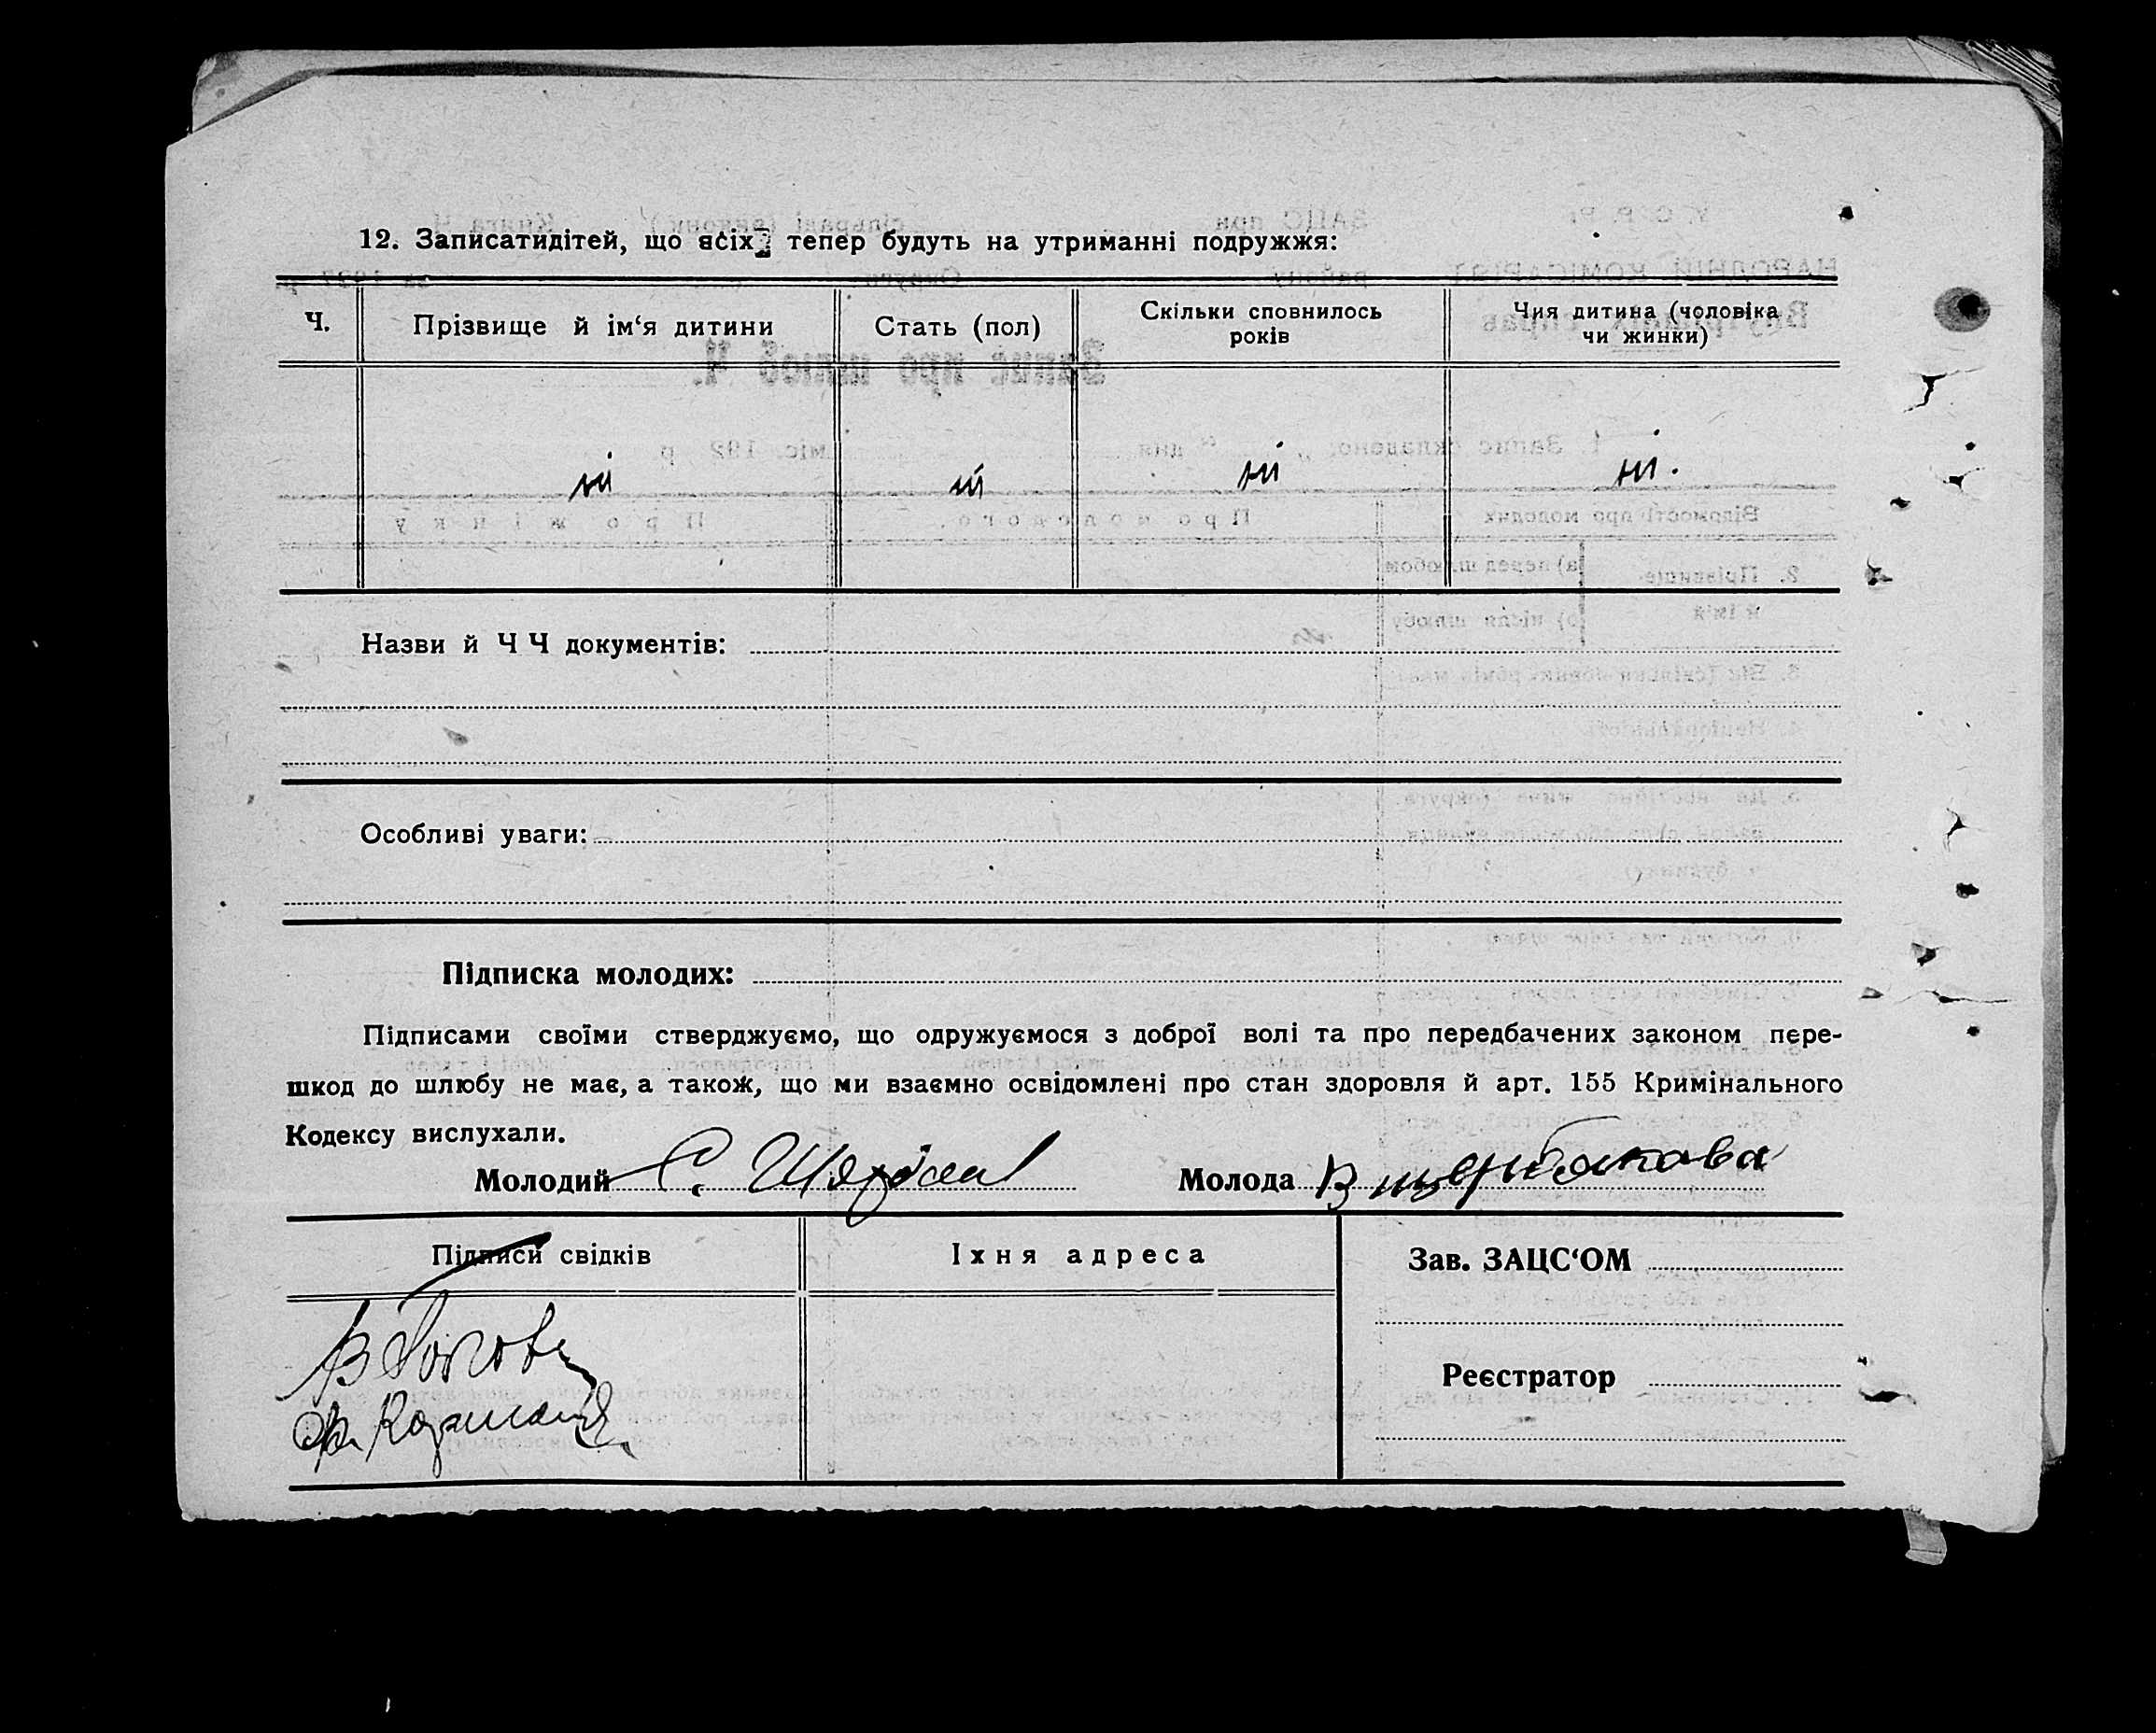 12. Записатидітей, що всіх тепер будуть на утриманні подружжя:
Ч.
Прізвище й ім‘я дитини
Стать (пол)
Скільки сповнилось
років
Чия дитина (чоловіка
чи жинки)
ні ні ні ні.
Назви й Ч Ч документів:
Особливі уваги:
Підписка молодих:
Підписами своїми стверджуємо, що одружуємося з доброї волі та про передбачених законом пере-
шкод до шлюбу не має, а також, що ми взаємно освідомлені про стан здоровля й арт. 155 Кримінального
Кодексу вислухали.
Молодий С. Молода В щербакова
Підписи свідків
Іхня адреса
Зав. ЗАЦС‘ОМ
Реєстратор